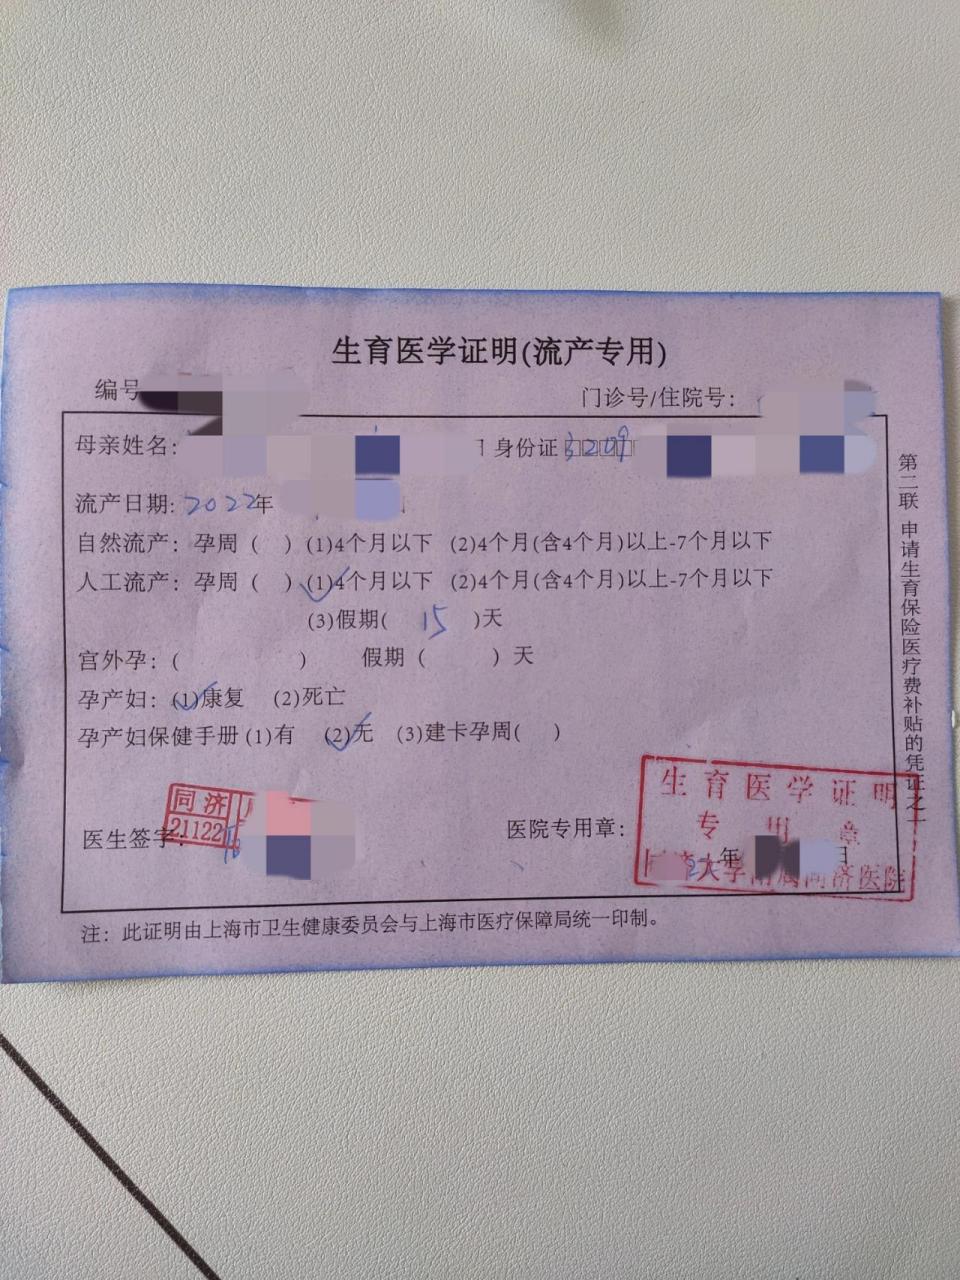 生育医学证明(流产专用)
编号
门诊号/住院号：
母亲姓名：
身份证3209
流产日期：2022年
自然流产：孕周（ ）(1)4个月以下 (2)4个月(含4个月)以上-7个月以下
人工流产：孕周（ ）(1)4个月以下 (2)4个月(含4个月)以上-7个月以下
(3)假期( 15 )天
宫外孕：( ) 假期（ ）天
孕产妇：(1)康复 (2)死亡
孕产妇保健手册 (1)有 (2)无 (3)建卡孕周( )
同济
21122
医生签字：
医院专用章：
年 日
生育医学证明
专用章
同济大学附属同济医院
注：此证明由上海市卫生健康委员会与上海市医疗保障局统一印制。
第二联 申请生育保险医疗费补贴的凭证之一